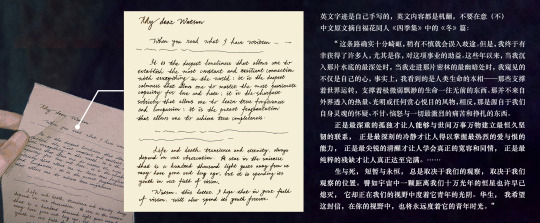 My dear Watson
When you read what I have written — —
It is the deepest loneliness that allows me to
establish the most constant and resilient connection
with everything in the world; it is the deepest
calmness that allows me to master the most passionate
capacity for love and hate; it is the sharpest
sobriety that allows me to learn true forgiveness
and compassion; it is the purest fragmentation
that allows me to achieve true completeness.
Life and death, transience and eternity, always
depend on our observation. A star in the universe
that is a hundred thousand light years away from us
may have gone out long ago, but it is spending its
youth in our field of vision.
Watson, this letter, I hope that in your field
of vision, will also spend its youth forever.
英文字迹是自己手写的，英文内容都是机翻，不要在意（不）
中文原文摘自福花同人《四季集》中的《冬》篇：
“这条路确实十分崎岖，稍有不慎就会误入歧途。但是，我终于有
幸获得了许多人，尤其是你，对这项事业的助益。这些年以来，当我沉
入那片水底的最深处时，当我走进那片密林的最幽暗处时，我窥见的
不仅是自己的心。事实上，我看到的是人类生命的本相——那些支撑
着世界运转，支撑着极微弱飘渺的生命一往无前的东西。那并不来自
外界遇人的热量、光明或任何赏心悦目的风物，相反，那是源自于我们
自身灵魂的怀疑、不甘、愤怒与一切最激烈的痛苦和挣扎的东西。
正是最深重的孤独才让人能够与世间万事万物建立最恒久坚
韧的联系， 正是最深刻的冷静才让人得以掌握最热烈的爱与恨的
能力， 正是最尖锐的清醒才让人学会真正的宽容和同情， 正是最
纯粹的残缺才让人真正达至完满。……
生与死，短暂与永恒， 总是取决于我们的观察， 取决于我们
观察的位置。譬如宇宙中一颗距离我们十万光年的恒星也许早已
熄灭， 它却正在我们的视野中度着它青年的光阴。华生， 我希望
这封信，在你的视野中，也将永远度着它的青年时光。”